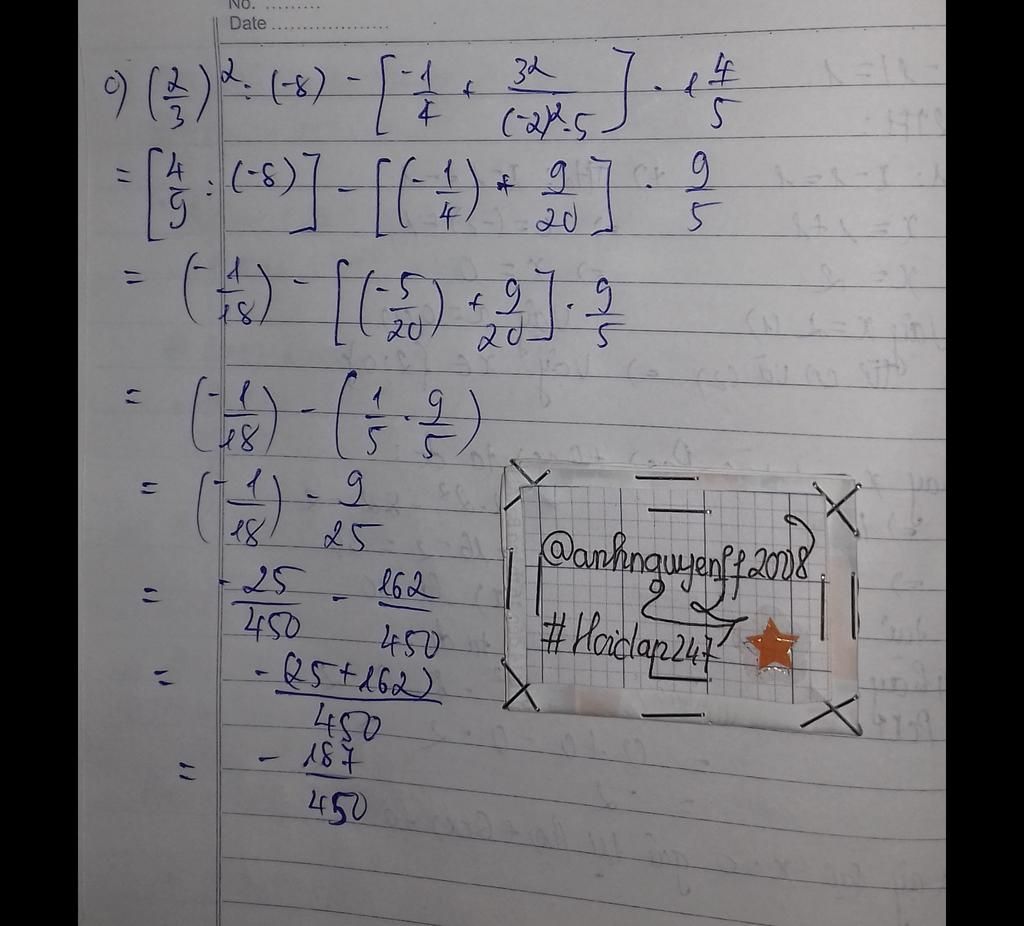 No. .........
Date ..................
c) (2/3)² : (-8) - [-1/4 + 3²/(-2)².5] . 1 4/5
= [4/9 : (-8)] - [(-1/4) + 9/20] . 9/5
= (-1/18) - [(-5/20) + 9/20] . 9/5
= (-1/18) - (1/5 . 9/5)
= (-1/18) - 9/25
= -25/450 - 162/450
= -(25+162)/450
= -187/450
@anhnguyenff2008
#Hoidap247